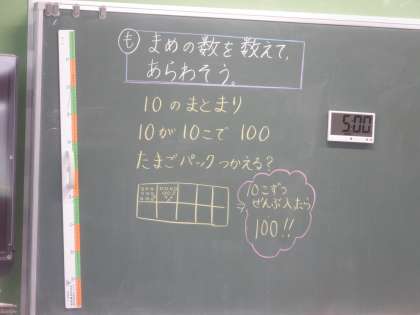 も
まめの数を数えて、
あらわそう。
10のまとまり
10が10こで 100
たまごパックつかえる?
10こずつ
ぜんぶ入たら
100!!
5:00